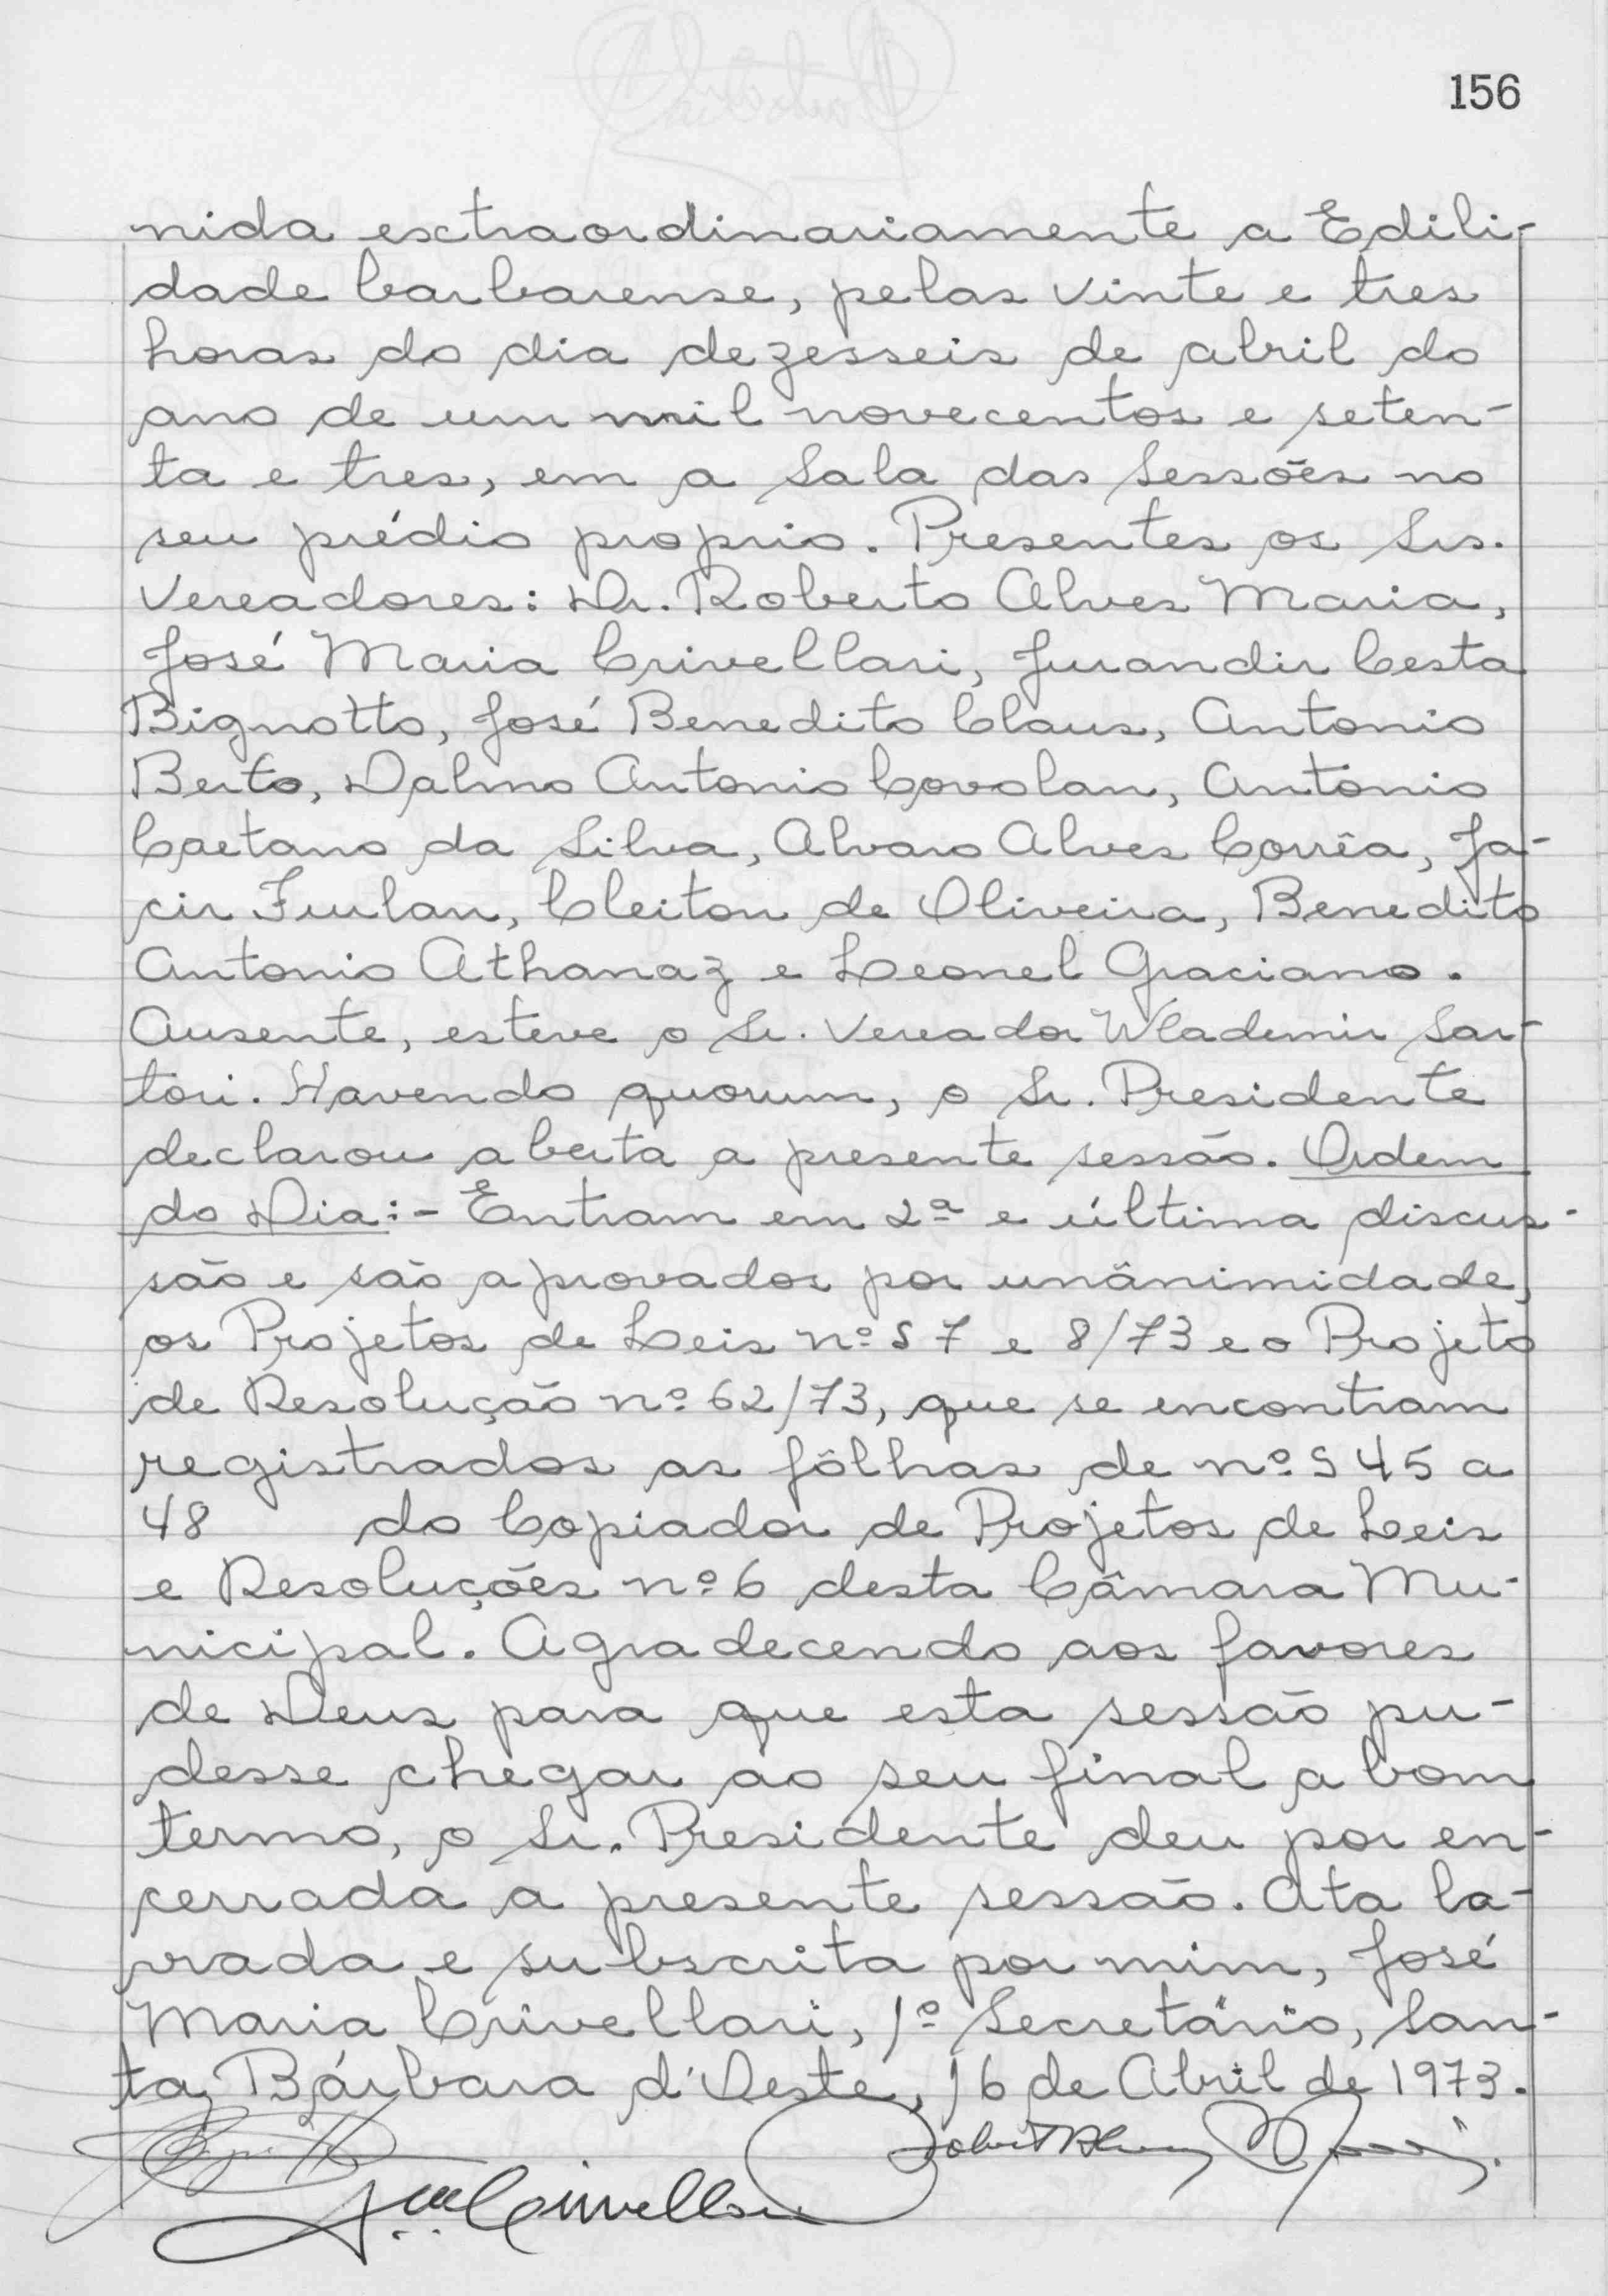 156
nida extraordinariamente a Edili-
dade barbarense, pelas vinte e tres
horas do dia dezesseis de abril do
ano de um mil novecentos e seten-
ta e tres, em a Sala das Sessões no
seu prédio proprio. Presentes os Srs.
Vereadores: Dr. Roberto Alves Maria,
José Maria Crivellari, Jurandir Cesta
Bignotto, José Benedito Claus, Antonio
Berto, Dalmo Antonio Covolan, Antonio
Caetano da Silva, Alvaro Alves Corrêa, Ja-
cir Furlan, Cleiton de Oliveira, Benedito
Antonio Athanaz e Leonel Graciano.
Ausente, esteve o Sr. Vereador Wlademir Sar-
tori. Havendo quorum, o Sr. Presidente
declarou aberta a presente sessão. Ordem
do Dia:- Entram em 2ª e última discus-
são e são aprovados por unânimidade,
os Projetos de Leis nºs 7 e 8/73 e o Projeto
de Resolução nº 62/73, que se encontram
registrados as fôlhas de nºs 45 a
48 do Copiador de Projetos de Leis
e Resoluções nº 6 desta Câmara Mu-
nicipal. Agradecendo aos favores
de Deus para que esta sessão pu-
desse chegar ao seu final a bom
termo, o Sr. Presidente deu por en-
cerrada a presente sessão. Ata la-
vrada e subscrita por mim, José
Maria Crivellari, 1º Secretário, San-
ta Bárbara d'Oeste, 16 de Abril de 1973.